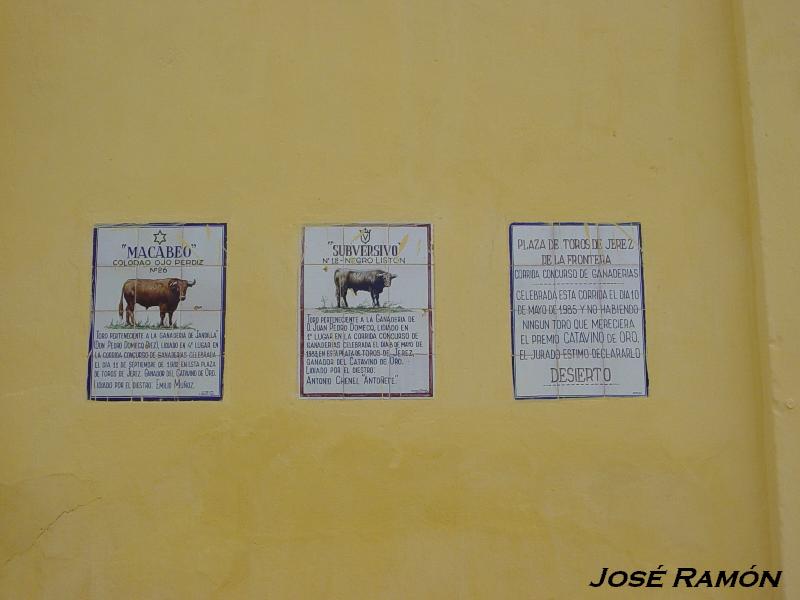 "MACABEO"
COLODAO OJO PERDIZ
Nº 26
TORO PERTENECIENTE A LA GANADERIA DE "JANDILLA"
(DON PEDRO DOMECQ DIEZ), LIDIADO EN 4º LUGAR EN
LA CORRIDA CONCURSO DE GANADERIAS CELEBRADA
EL DIA 11 DE SEPTIEMBRE DE 1982 EN ESTA PLAZA
DE TOROS DE JEREZ. GANADOR DEL CATAVINO DE ORO.
LIDIADO POR EL DIESTRO: EMILIO MUÑOZ.
"SUBVERSIVO"
Nº 18-NEGRO LISTON
TORO PERTENECIENTE A LA GANADERIA DE
D. JUAN PEDRO DOMECQ, LIDIADO EN
1º LUGAR EN LA CORRIDA CONCURSO DE
GANADERIAS CELEBRADA EL DIA 8 DE MAYO DE
EN ESTA PLAZA DE TOROS DE JEREZ.
GANADOR DEL CATAVINO DE ORO.
LIDIADO POR EL DIESTRO:
ANTONIO CHENEL ANTOÑETE".
PLAZA DE TOROS DE JEREZ
DE LA FRONTERA
CORRIDA CONCURSO DE GANADERIAS
CELEBRADA ESTA CORRIDA EL DIA 10
DE MAYO DE 1985 Y NO HABIENDO
NINGUN TORO QUE MERECIERA
EL PREMIO CATAVINO DE ORO,
EL JURADO ESTIMO DECLARARLO
DESIERTO
JOSÉ RAMÓN